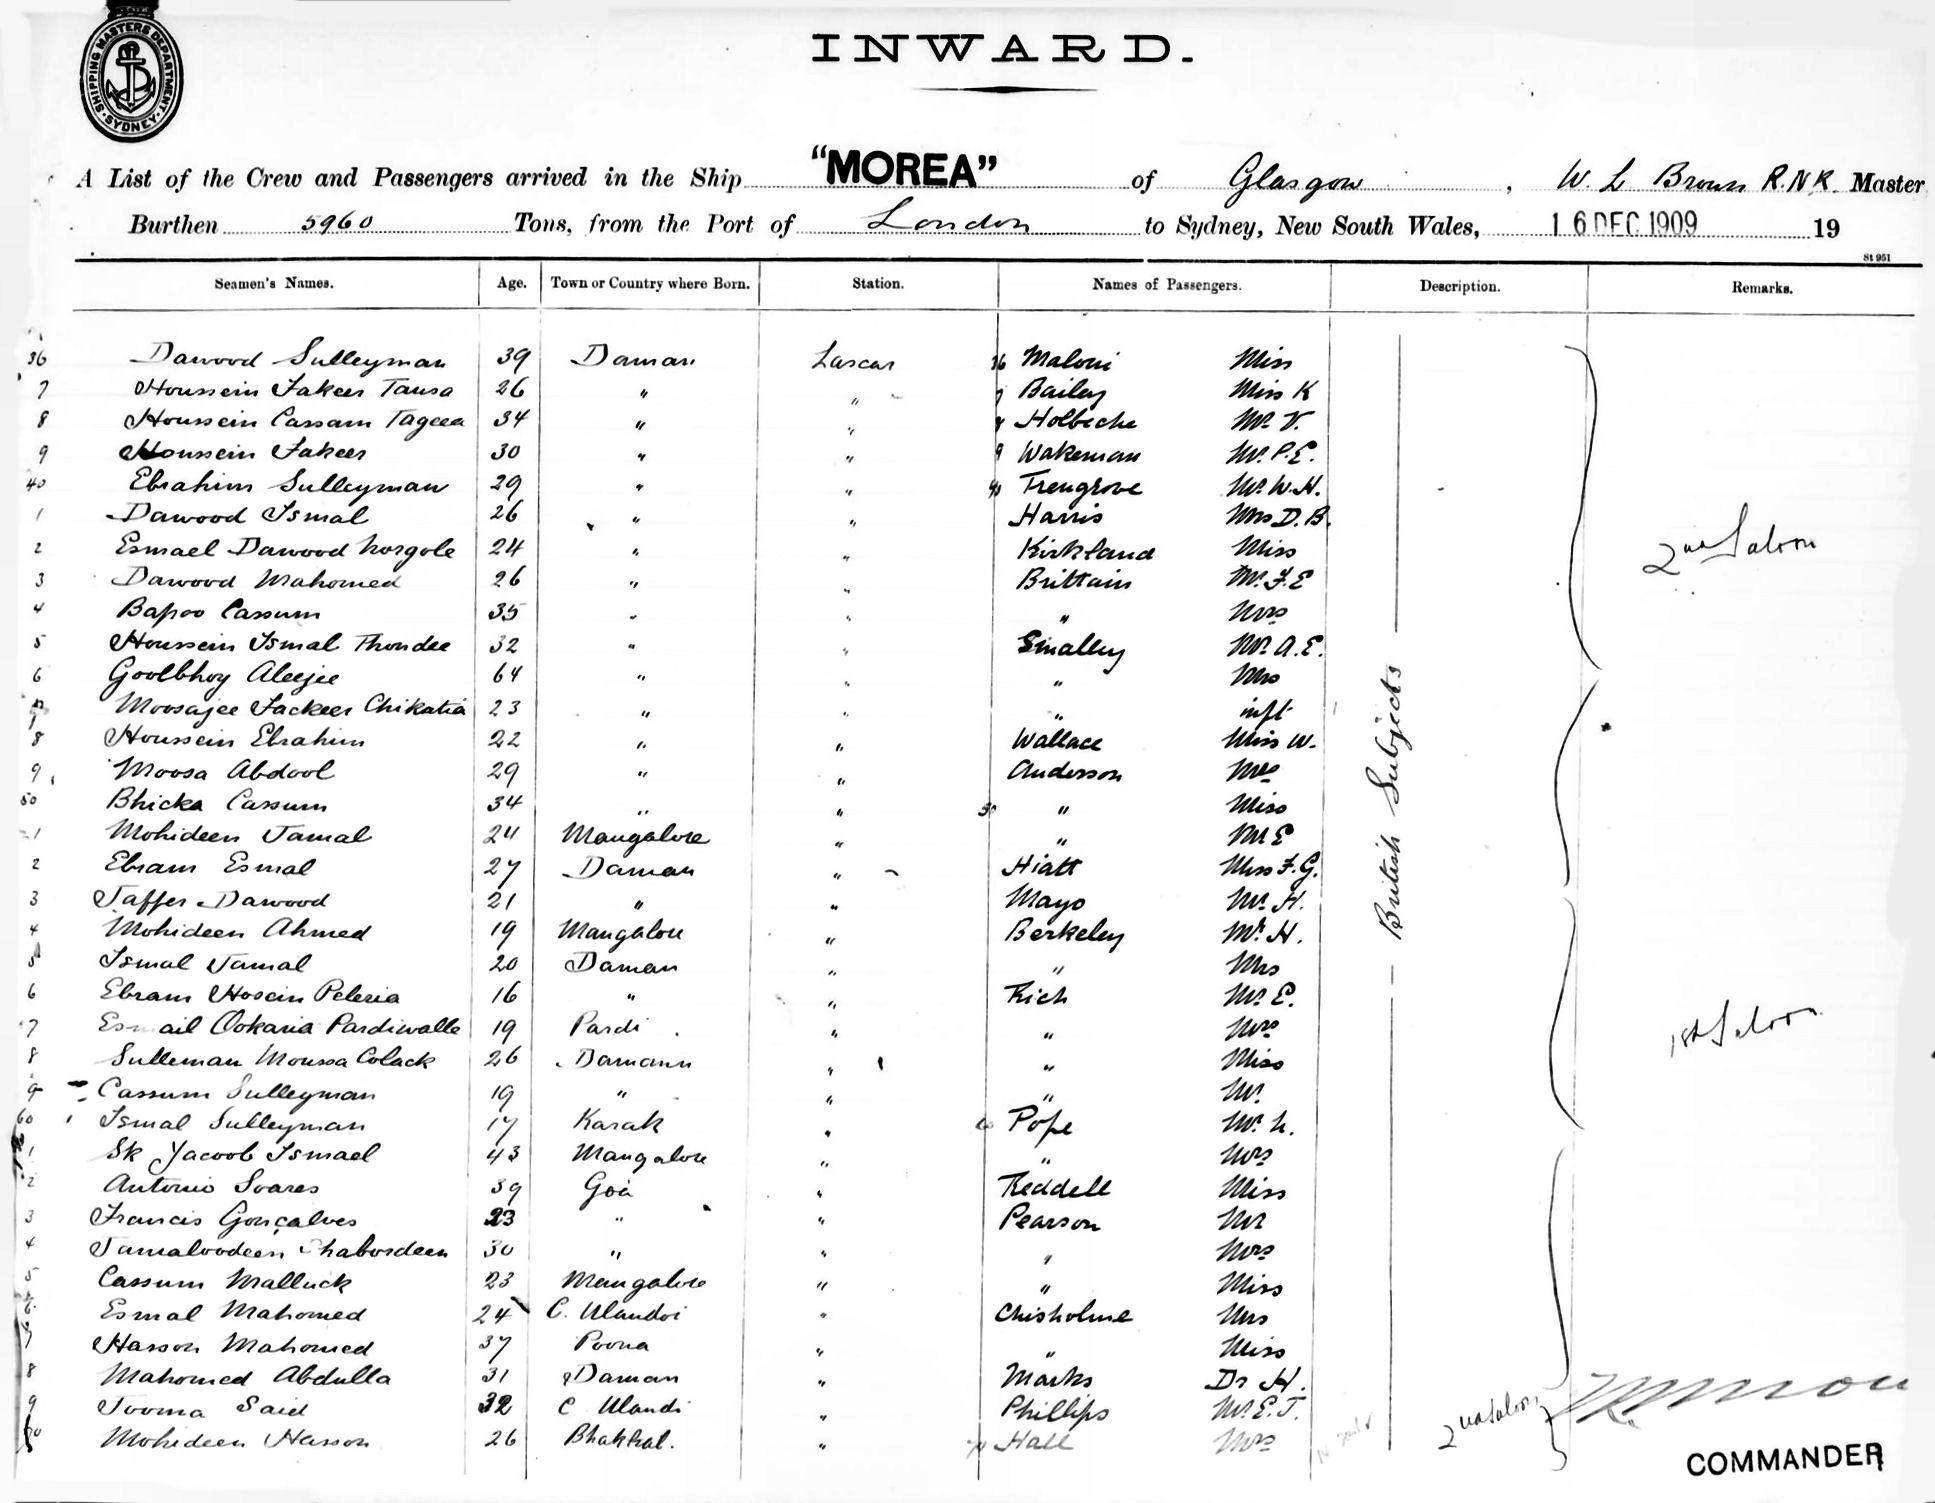 SHIPPING MASTERS DEPARTMENT
SYDNEY
INWARD.
A List of the Crew and Passengers arrived in the Ship "MOREA" of Glasgow, W. L Brown R.N.R. Master
Burthen 5960 Tons, from the Port of London to Sydney, New South Wales, 16 DEC 1909 19
St 951
Seamen's Names. Age. Town or Country where Born. Station. Names of Passengers. Description. Remarks.
36 Dawood Sulleyman 39 Daman Lascar 36 Maloni Miss
7 Houssein Fakeer Tausa 26 " " 7 Bailey Miss K
8 Houssein Cassam Tageea 34 " " 8 Holbeche Mr V.
9 Houssein Fakeer 30 " " 9 Wakeman Mr P.E.
40 Ebrahim Sulleyman 29 " " 40 Trengrove Mr W.H.
1 Dawood Ismal 26 " " Harris Mrs D.B.
2 Esmael Dawood 24 " " Kirkland Miss
2nd Saloon
3 Dawood Mahomed 26 " " Brittain Mr F.E
4 Bapoo Cassum 35 " " " Mrs
5 Houssein Ismal Thondee 32 " " Smalley Mr A.E.
6 Goolbhoy Aleejee 64 " " " Mrs
7 Moosajee Fackeer Chikatia 23 " " " inft
8 Houssein Ebrahim 22 " " Wallace Miss W.
British Subjects
9 Moosa Abdool 29 " " Anderson Mrs
50 Bhicka Cassum 34 " " 50 " Miss
1 Mohideen Jamal 24 Mangalore " " Mr E
2 Ebram Esmal 27 Daman " Hiatt Miss F.G.
3 Jaffer Dawood 21 " " Mayo Mr H.
4 Mohideen Ahmed 19 Mangalore " Berkeley Mr H.
5 Ismal Jamal 20 Daman " " Mrs
6 Ebram Hosein Peleria 16 " " Rich Mr E.
7 Esmail Ookaria Pardiwalla 19 Pardi " " Mrs
1st Saloon
8 Sulleman Moussa Colack 26 Damann " " Miss
9 Cassum Sulleyman 19 " " " Mr
60 Ismal Sulleyman 17 Karak " 60 Pope Mr
1 Sk Yacoob Ismael 43 Mangalore " " Mrs
2 Antonio Soares 39 Goa " Reddell Miss
3 Francis Gonçalves 23 " " Pearson Mr
4 Jamaloodeen 30 " " " Mrs
5 Cassum Malluck 23 Mangalore " " Miss
6 Esmal Mahomed 24 C. Ulandi " Chisholme Mrs
7 Hasson Mahomed 37 Poona " " Miss
8 Mahomed Abdulla 31 Daman " Marks Dr H.
9 Jooma Said 32 C Ulandi " Phillips Mr E.J.
70 Mohideen Hasson 26 Bhatkal. " 70 Hall Mrs
2nd Saloon
COMMANDER